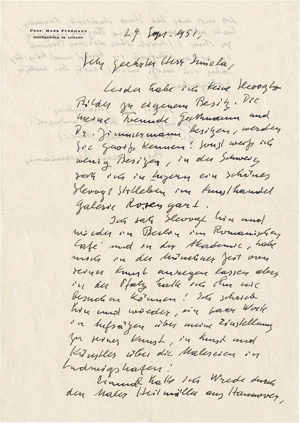 PROF. HANS PURRMANN
MONTAGNOLA DI LUGANO
29 Sept. 1951.
Sehr geehrter Herr
leider habe ich keine Slevogt
Bilder zu eigenem Besitz. Die
meine Freunde Guthmann und
Dr. Zimmermann besitzen, werden
Sie gewiss kennen! Sonst weiss ich
wenig Besitzer, in der Schweiz
sah ich in Luzern ein schönes
Slevogt Stilleben im Kunsthandel
Galerie Rosengart.
Ich sah Slevogt hin und
wieder in Berlin im Romanischen
Café und in der Akademie, habe
mich in der Münchner Zeit von
seiner Kunst anregen lassen aber
in der Pfalz hatte ich ihn nie
besuchen können! Ich schrieb
hin und wieder, ein paar Worte
in Aufsätzen über meine Einstellung
zu seiner Kunst, in Kunst und
Künstler über die Malereien in
Ludwigshafen!
Einmal hatte ich durch
den Maler Heitmüller aus Hannover,